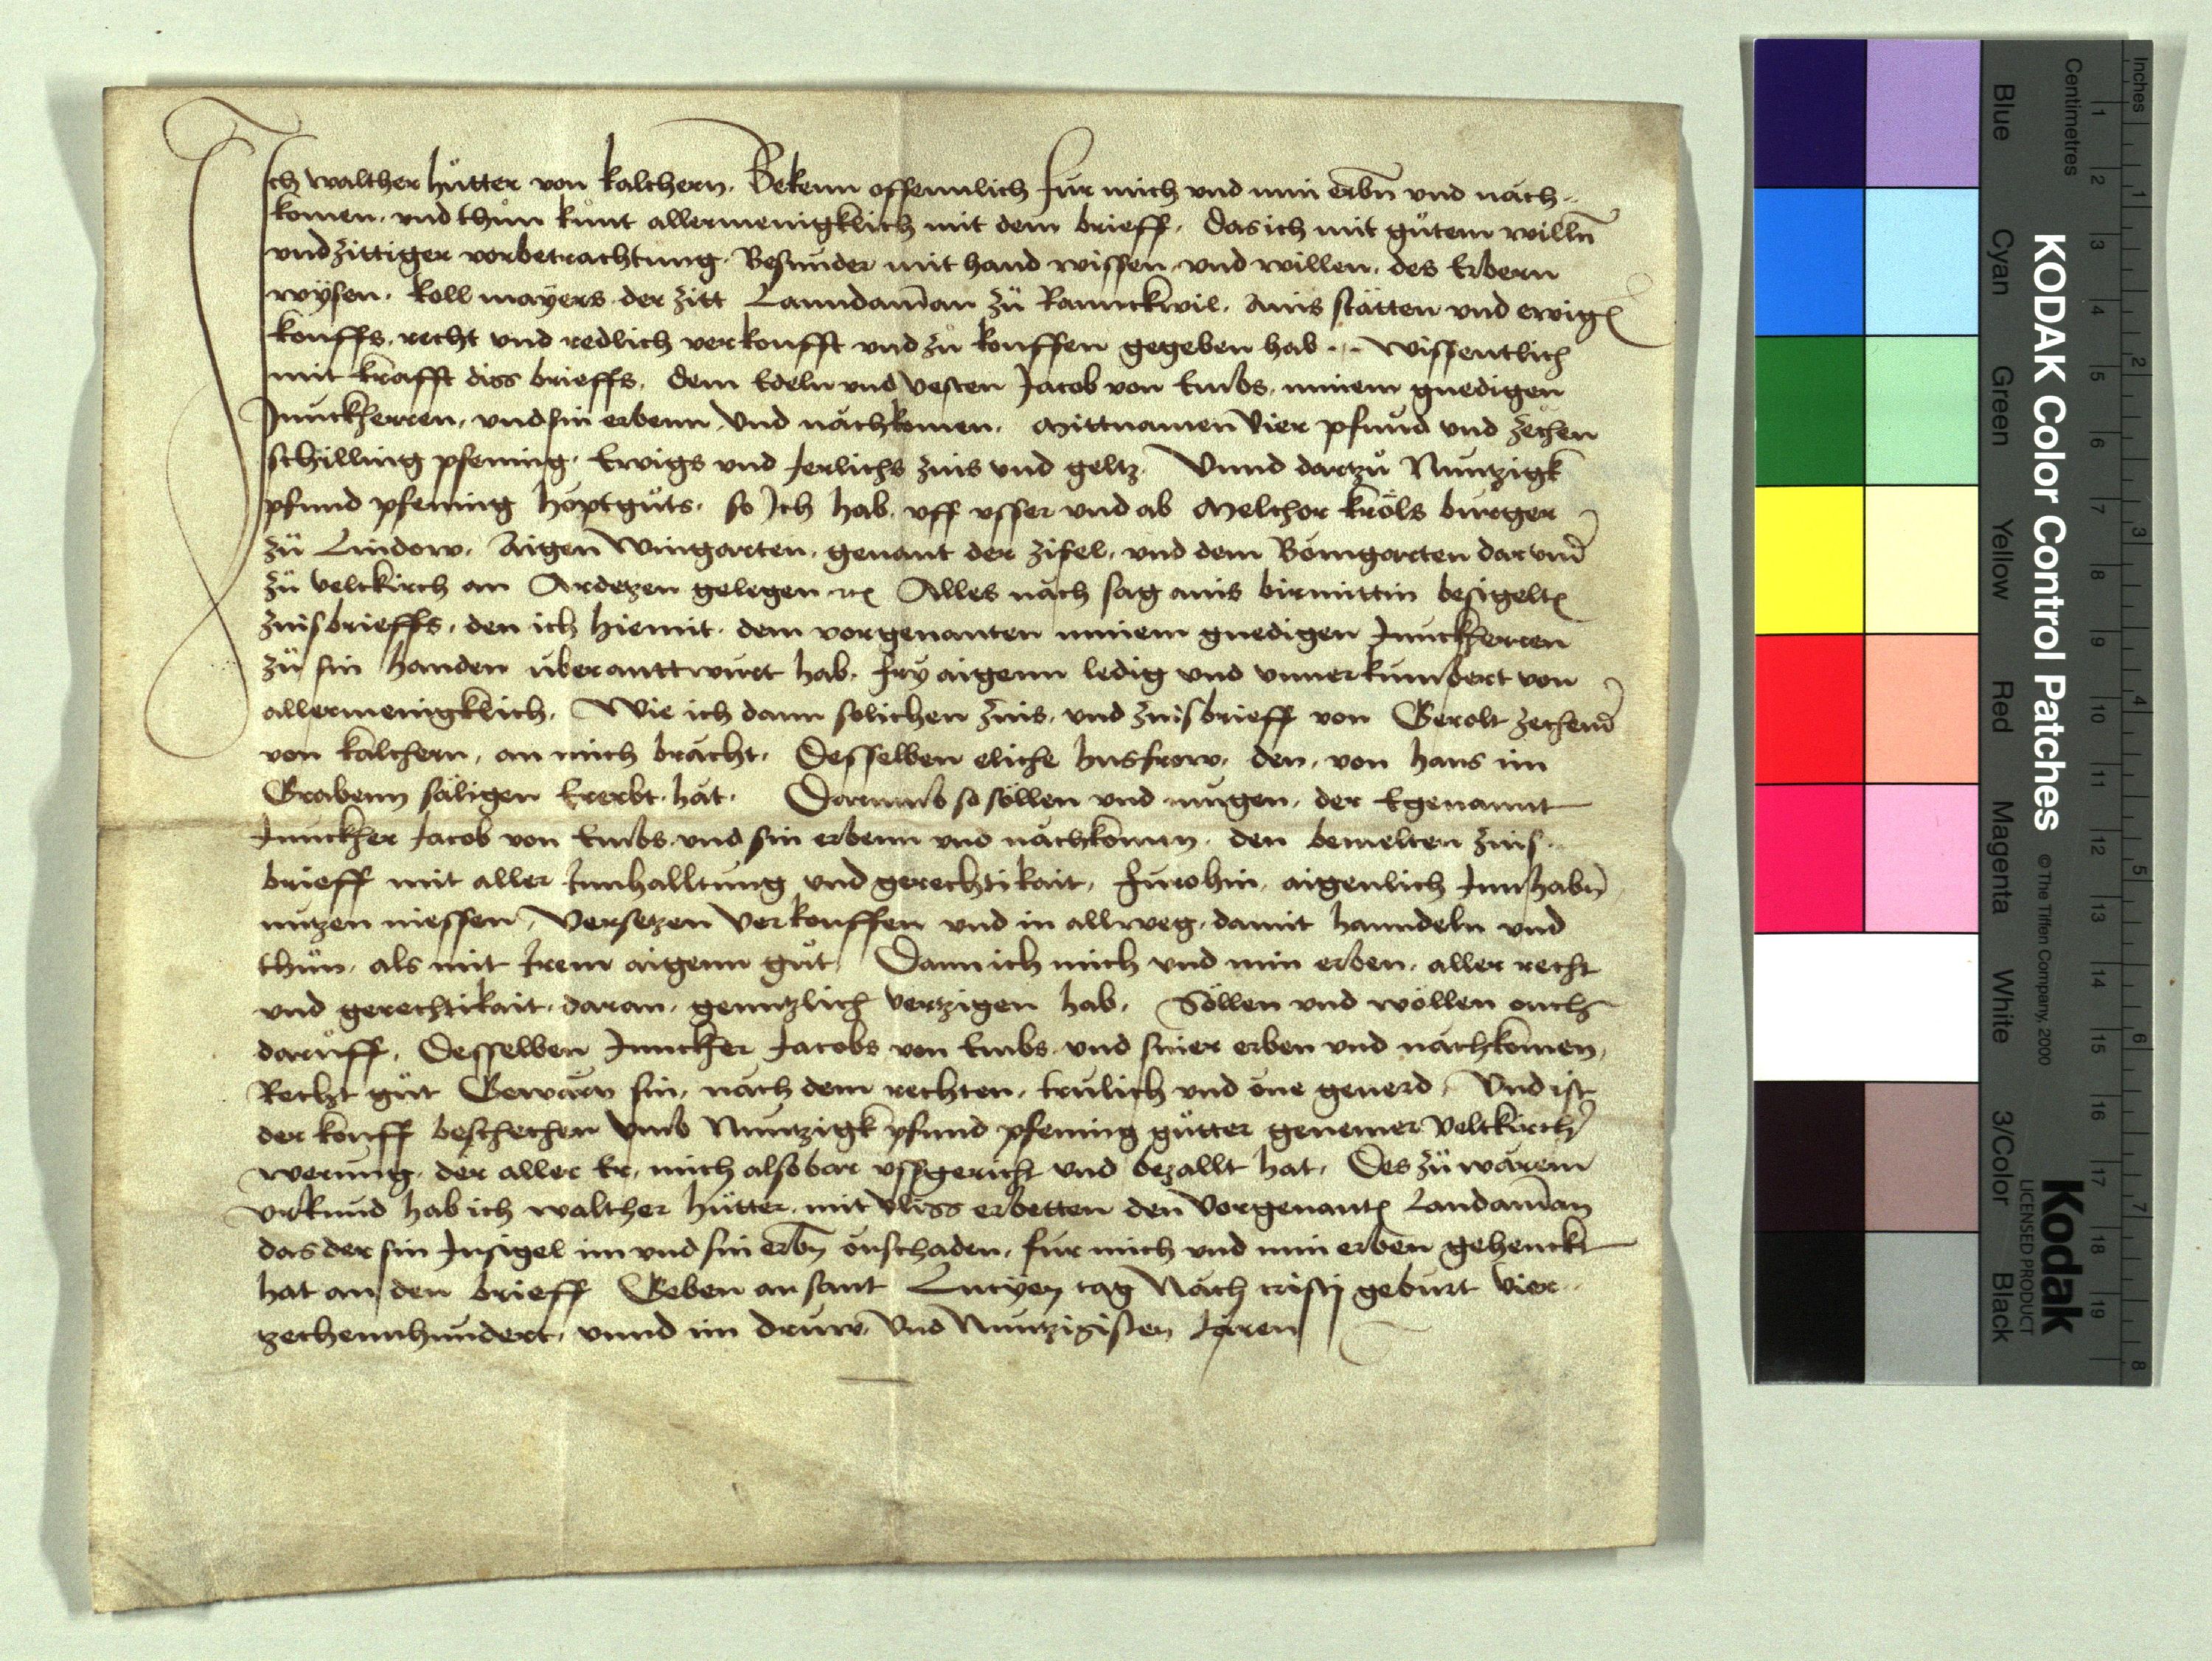 Ich walther hu̍tter von kalchern. Bekenn offennlich fur mich vnd min erbn̄ vnd nach-
komen. vnd thůn kůnt allermenigklich mit dem brieff. das ich mit gůtem willn̄
vnd zittiger vorbetrachtung. Besunder mit hand wissen vnd willen. des Erbern
wÿsen. koll mayers der zitt Lanndam̄an zů Rannckwil. ains stätten vnd ewigen
kouffs. recht vnd redlich verkoufft vnd zů kouffen gegeben hab. wissentlich
mit krafft diss brieffs. dem Edeln vnd vesten Jacob von Embs. minem gnedigen
Junckherren. vnd sin erbenn vnd nachkomen. Mittnamen vier pfund vnd zechen
schilling pfening. Ewigs vnd Jerlichs zins vnd geltz. Vnnd dartzů Nuntzigk
pfund pfening hoptgůts. so Ich hab. vff vsser vnd ab Melchor kröls burger
zů Lindow. Aigen wingarten. genant der zifel. vnd dem Bomgarten darvnder
zů veltkirch an Ardetzen gelegen etc Alles nach sag ains birmittin besigelten
zinsbrieffs. den ich hiemit. dem vorgenanten minem gnedigen Junckherren
zů sin handen überanttwurt hab. fry aigenn ledig vnd vnuerkumbert von
allermenigklich. Wie ich dann solichen zins. vnd zinsbrieff von Gerolt zechend
von kalchern. an mich bracht. Desselben eliche husfrow. den. von hans im
Grabenn säligen Ererbt hat. Darumb so söllen vnd mugen. der Egenannt
Junckher Jacob von Embs. vnd sin erbenn vnd nachkomen. den bemelten zins
brieff mit aller Innhalltung vnd gerechtikait. Furohin. aigenlich Innhabn̄
nutzen niessen. Versetzen verkouffen vnd in allweg. damit hanndeln vnd
thůn. als mit Irem aigenn gůt. Dann ich mich vnd min erben. aller recht
vnd gerechtikait. daran. genntzlich vertzigen hab. Söllen vnd wöllen ouch
daruff. Desselben Junckher Jacobs von Embs. vnd siner erben vnd nachkomen.
Recht gůt Gewärn sin. nach dem rechten. trulich vnd one geuerd. Vnd ist
der kouff beschechen vmb Nuntzigk pfund pfening gůtter genemer Veltkircher
werung. der aller Er. mich also bar vssgericht vnd bezallt hat. Des zů warem
vrkund hab ich walther hütter. mit vliss erbetten den vorgenanten Landam̄an
das der sin Insigel im vnd sin erbn̄ onschaden. fur mich vnd min erben gehenckt
hat an den brieff Geben an sant Lucyen tag Nach cristj geburt vier-
zechennhundert. vnnd im druw. vnd Nuntzigisten Jaren
KODAK Color Control Patches ©The Tiffen Company, 2000
Kodak
LICENSED PRODUCT
Blue Cyan Green Yellow Red Magenta White 3/Color Black
Centimetres 1 2 3 4 5 6 7 8 9 10 11 12 13 14 15 16 17 18 19
Inches 1 2 3 4 5 6 7 8